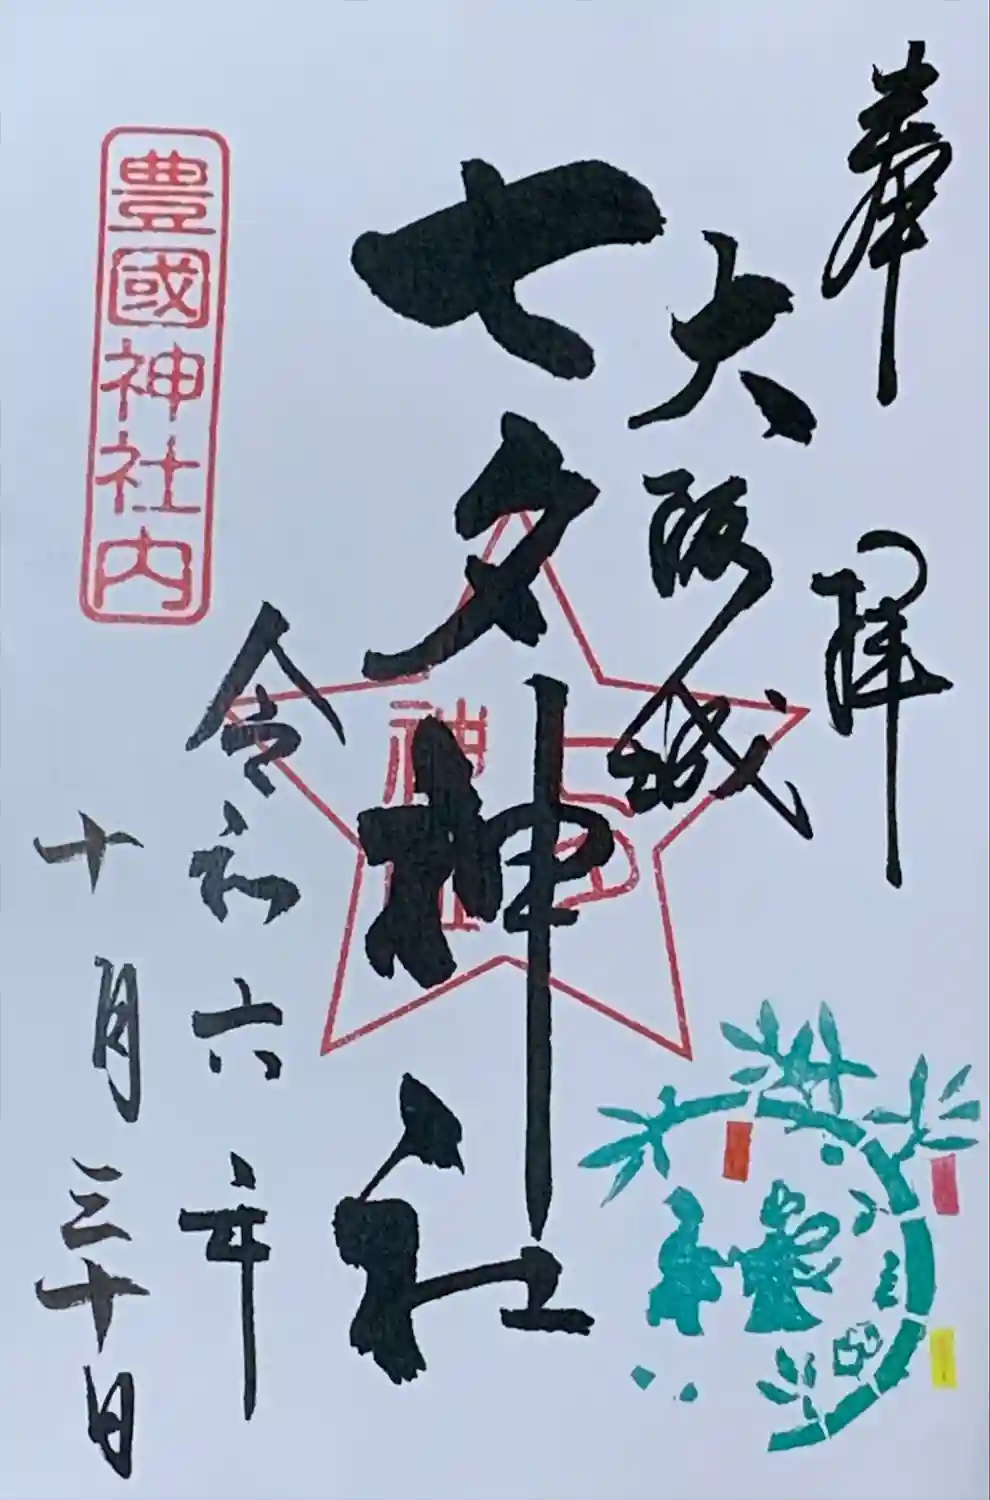 奉拝
大阪城
七夕神社
令和六年
十月三十日
豊國神社内
神社